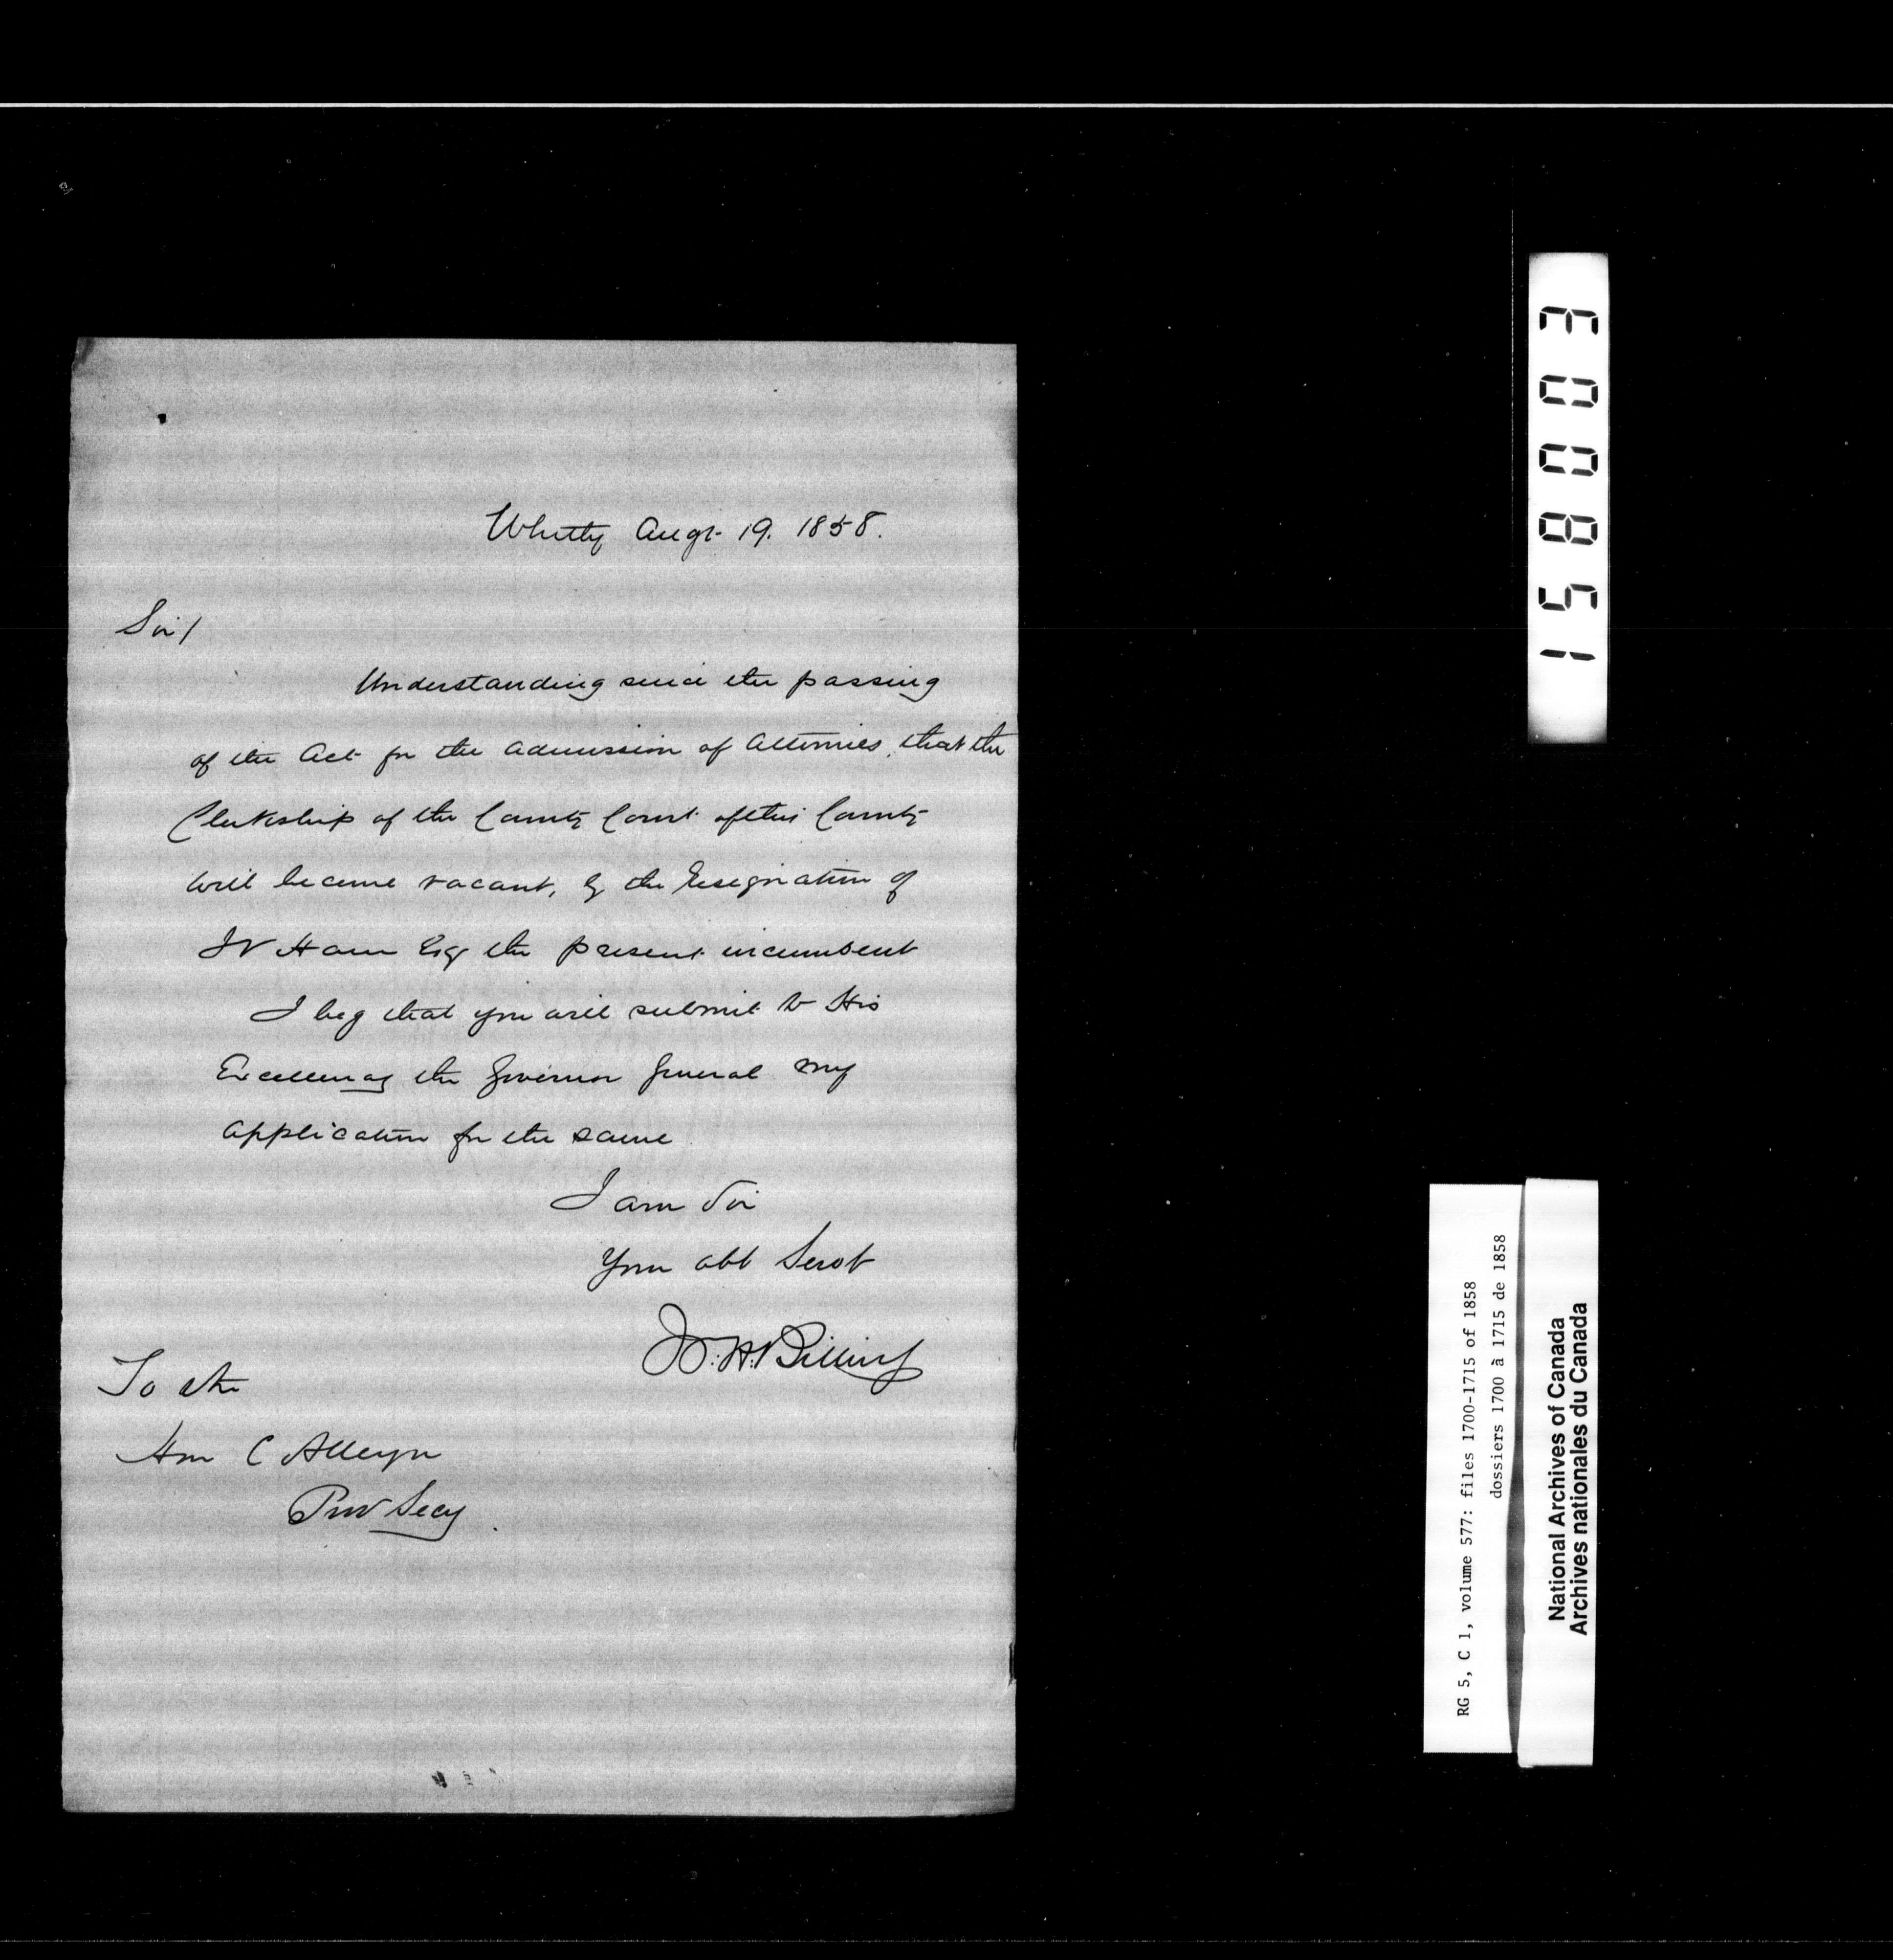 Whitby Augt. 19. 1858.
Sir/
Understanding since the passing
of the Act for the admission of Attornies, that the
Clerkship of the County Court of this County
will become vacant, by the resignation of
JV Ham Esq the present incumbent
I beg that you will submit to His
Excellency the Governor General my
application for the same
I am Sir
Your obt Servt
W. H. Billings
To the
Hon C Alleyn
Prov Secy.
158003
RG 5, C 1, volume 577: files 1700-1715 of 1858
dossiers 1700 à 1715 de 1858
National Archives of Canada
Archives nationales du Canada